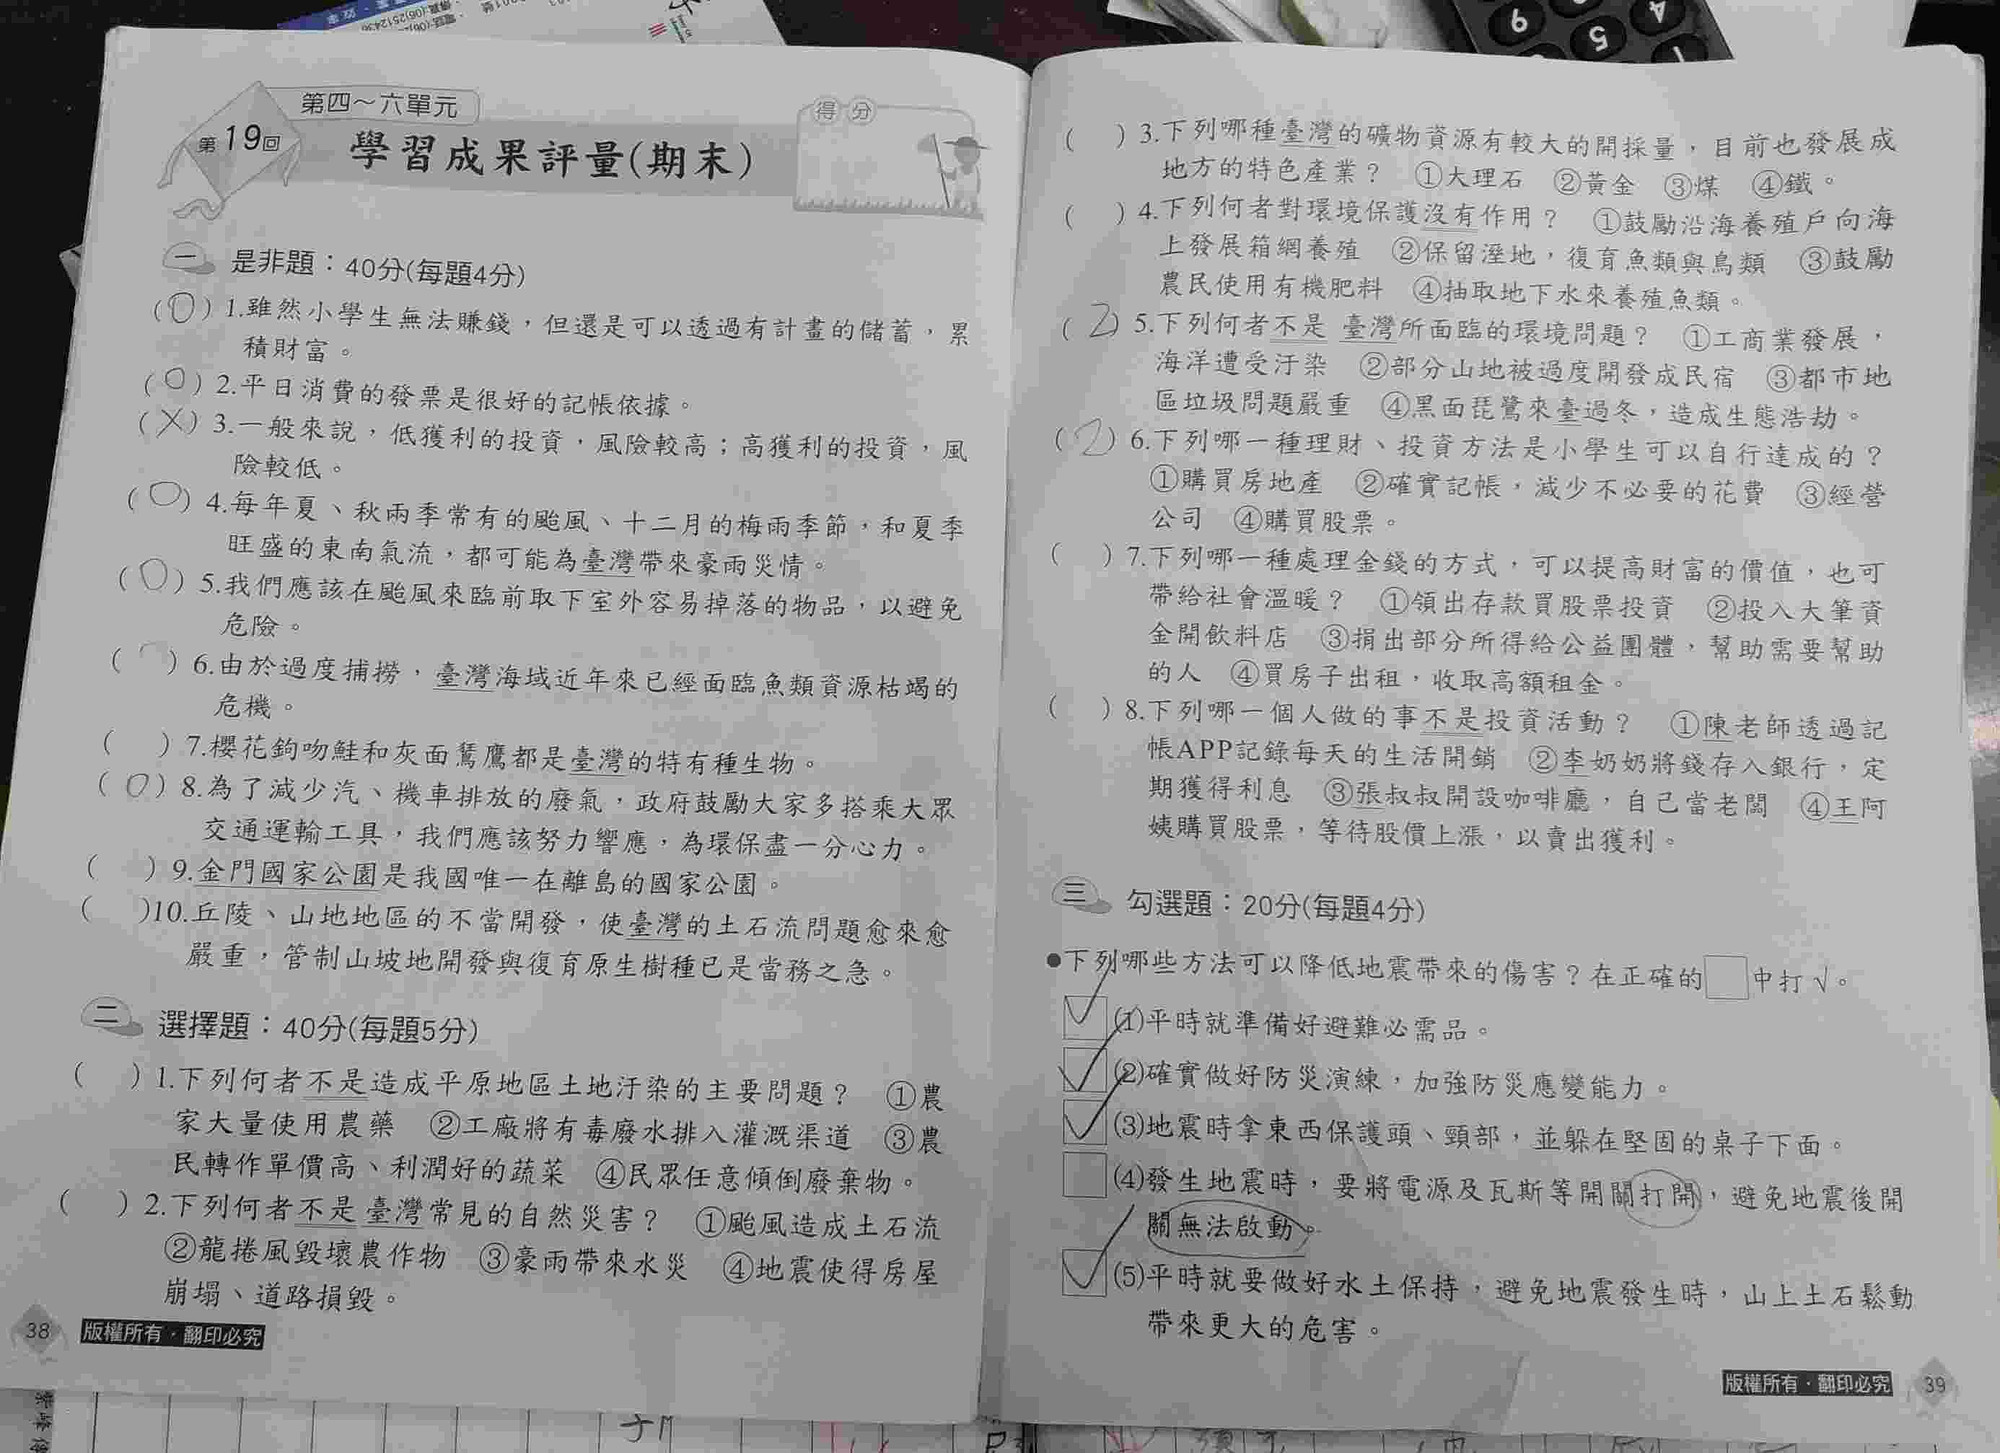 第四～六單元
第19回
學習成果評量(期末)
得分
一 是非題：40分(每題4分)
(O)1.雖然小學生無法賺錢，但還是可以透過有計畫的儲蓄，累
積財富。
(O)2.平日消費的發票是很好的記帳依據。
(X)3.一般來說，低獲利的投資，風險較高；高獲利的投資，風
險較低。
(O)4.每年夏、秋兩季常有的颱風、十二月的梅雨季節，和夏季
旺盛的東南氣流，都可能為臺灣帶來豪雨災情。
(O)5.我們應該在颱風來臨前取下室外容易掉落的物品，以避免
危險。
( )6.由於過度捕撈，臺灣海域近年來已經面臨魚類資源枯竭的
危機。
( )7.櫻花鉤吻鮭和灰面鵟鷹都是臺灣的特有種生物。
(O)8.為了減少汽、機車排放的廢氣，政府鼓勵大家多搭乘大眾
交通運輸工具，我們應該努力響應，為環保盡一分心力。
( )9.金門國家公園是我國唯一在離島的國家公園。
( )10.丘陵、山地地區的不當開發，使臺灣的土石流問題愈來愈
嚴重，管制山坡地開發與復育原生樹種已是當務之急。
二 選擇題：40分(每題5分)
( )1.下列何者不是造成平原地區土地汙染的主要問題？ ①農
家大量使用農藥 ②工廠將有毒廢水排入灌溉渠道 ③農
民轉作單價高、利潤好的蔬菜 ④民眾任意傾倒廢棄物。
( )2.下列何者不是臺灣常見的自然災害？ ①颱風造成土石流
②龍捲風毀壞農作物 ③豪雨帶來水災 ④地震使得房屋
崩塌、道路損毀。
38 版權所有·翻印必究
( )3.下列哪種臺灣的礦物資源有較大的開採量，目前也發展成
地方的特色產業？ ①大理石 ②黃金 ③煤 ④鐵。
( )4.下列何者對環境保護沒有作用？ ①鼓勵沿海養殖戶向海
上發展箱網養殖 ②保留溼地，復育魚類與鳥類 ③鼓勵
農民使用有機肥料 ④抽取地下水來養殖魚類。
(2)5.下列何者不是臺灣所面臨的環境問題？ ①工商業發展，
海洋遭受汙染 ②部分山地被過度開發成民宿 ③都市地
區垃圾問題嚴重 ④黑面琵鷺來臺過冬，造成生態浩劫。
(2)6.下列哪一種理財、投資方法是小學生可以自行達成的？
①購買房地產 ②確實記帳，減少不必要的花費 ③經營
公司 ④購買股票。
( )7.下列哪一種處理金錢的方式，可以提高財富的價值，也可
帶給社會溫暖？ ①領出存款買股票投資 ②投入大筆資
金開飲料店 ③捐出部分所得給公益團體，幫助需要幫助
的人 ④買房子出租，收取高額租金。
( )8.下列哪一個人做的事不是投資活動？ ①陳老師透過記
帳APP記錄每天的生活開銷 ②李奶奶將錢存入銀行，定
期獲得利息 ③張叔叔開設咖啡廳，自己當老闆 ④王阿
姨購買股票，等待股價上漲，以賣出獲利。
三 勾選題：20分(每題4分)
●下列哪些方法可以降低地震帶來的傷害？在正確的□中打√。
☑(1)平時就準備好避難必需品。
☑(2)確實做好防災演練，加強防災應變能力。
☑(3)地震時拿東西保護頭、頸部，並躲在堅固的桌子下面。
□(4)發生地震時，要將電源及瓦斯等開關打開，避免地震後開
關無法啟動。
☑(5)平時就要做好水土保持，避免地震發生時，山上土石鬆動
帶來更大的危害。
版權所有·翻印必究 39